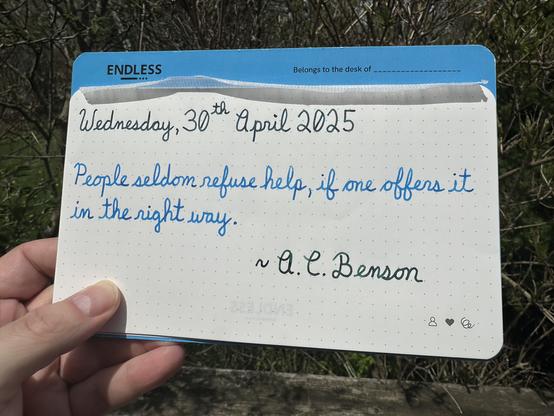 ENDLESS
Belongs to the desk of
Wednesday, 30th April 2025
People seldom refuse help, if one offers it
in the right way.
~ A. C. Benson
ENDLESS